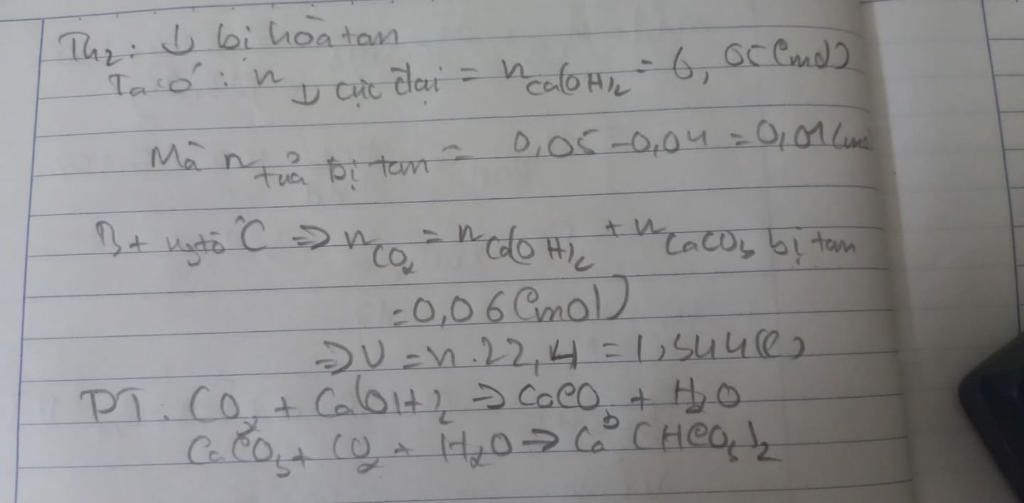 TH2: ↓ bị hòa tan
Ta có: n↓ cực đại = nCa(OH)2 = 0,05 (mol)
Mà n tủa bị tan = 0,05 - 0,04 = 0,01 (mol
Bt ngtố C => nCO2 = nCa(OH)2 + nCaCO3 bị tan
= 0,06 (mol)
=> V = n.22,4 = 1,344 (l)
PT: CO2 + Ca(OH)2 => CaCO3 + H2O
CaCO3 + CO2 + H2O => Ca(HCO3)2